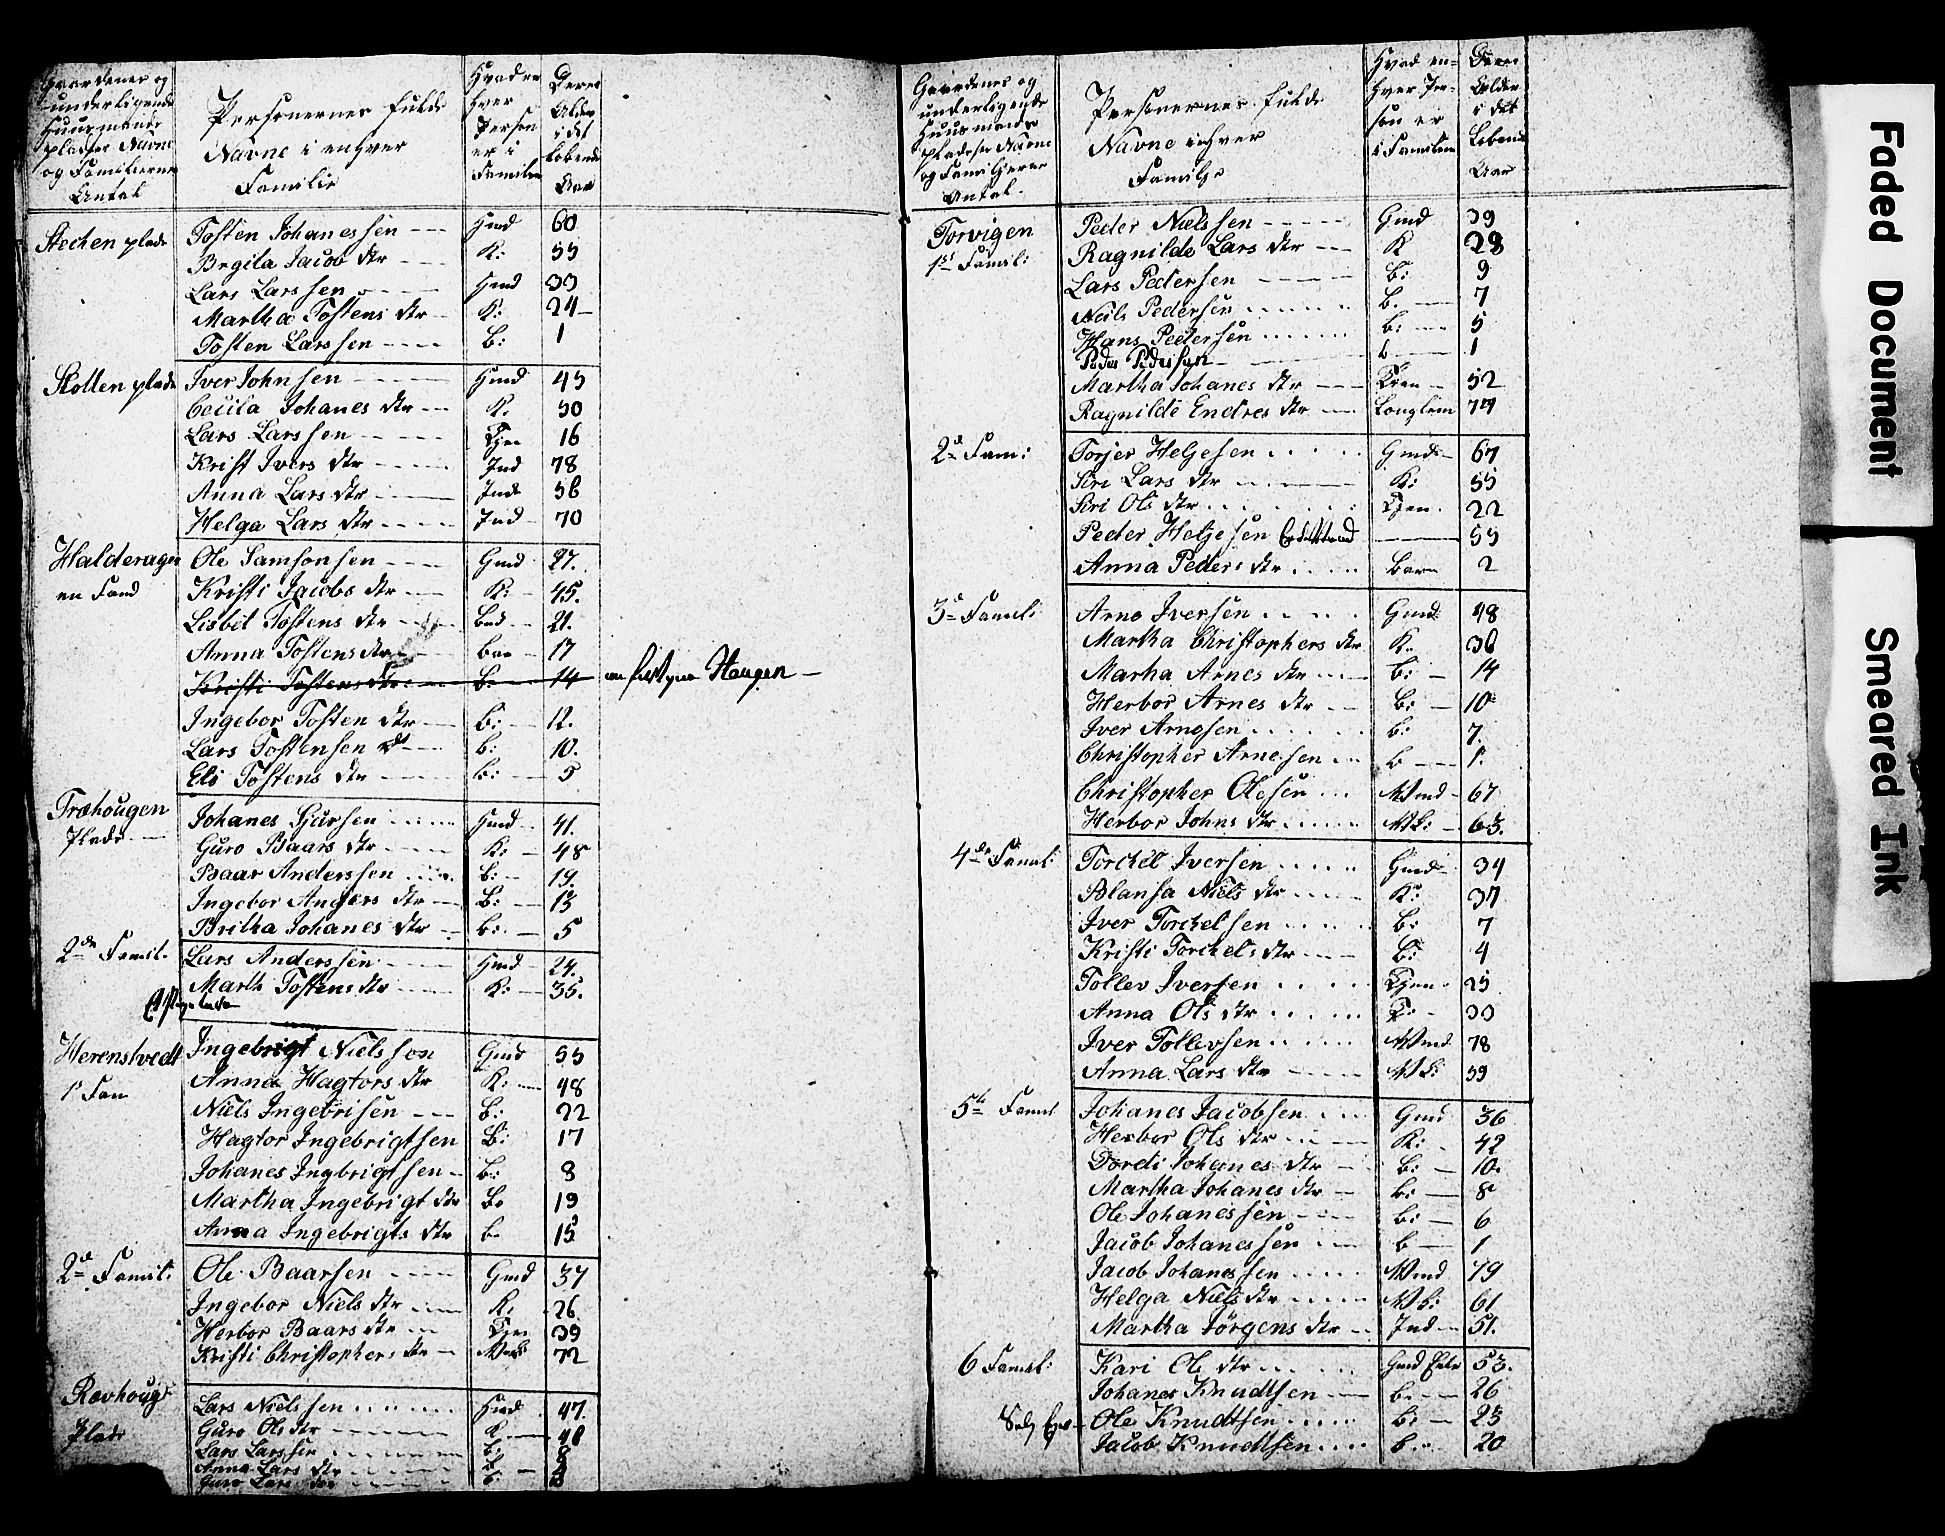 Gaardenes og underligende Huusmænds pladser Navne og Familiernes Antal
Personernes fulde Navne i enhver Familie
Hvad en hver Person er i Familien
Deres Alder i det løbende Aar
Stechen plads Tosten Johanessen Hmd 60
Brgita Jacob dtr K: 55
Lars Larssen Hmd 33
Martha Tostens dtr K: 24
Tosten Larssen B: 1
Skollen plads Iver Johnsen Hmd 45
Cecila Johanes dtr K. 50
Lars Larssen Tjen 16
Krist Ivers dtr Ind 78
Anna Lars dtr Ind 56
Helga Lars dtr Ind 70
Halderagen en Famd Ole Samsonsen Gmd 27.
Kristi Jacobs dtr K: 45.
Lisbet Tostens dtr 21.
Anna Tostens dtr 17
Kristi Tostens dtr B. 14 Haugen
Ingebor Tosten dtr B: 12.
Lars Tostensen b: 10.
Els Tostens dtr b: 5
Træhougen Plads Johanes Sjursen Hmd 41.
Guro Baars dtr K: 48
Baar Anderssen b: 19.
Ingebor Anders dtr B: 13
Britha Johanes dtr b: 5
2de Famil. Lars Anderssen Hmd 24.
Marth Tostens dtr K: 35.
Herenstvedt 1 Fam Ingebrigt Nielsson Gmd 55
Anna Hagtors dtr K: 48
Niels Ingebrisen B: 22
Hagtor Ingebrigtsen B: 17
Johanes Ingbrigtsen B: 8
Martha Ingebrigt dtr B: 19
Anna Ingebrigts dtr b. 15
2de Famil: Ole Baarsen Gmd 37
Ingebor Niels dtr K: 26
Herbor Baars dtr Tjen 39
Kristi Christophers dtr 72
Rævhougs Plads Lars Nielssen Hmd 47.
Guro Ols dtr K. 48
Lars Larssen B: 8
Anna Lars dtr b
Guro Lars dtr b
Gaardenes og underligende Huusmænds pladser Navne og Familjernes Antal.
Personernes fulde Navne i enhver Familje
Hvad en- hver Person er i Familien
Deres Alder i det Løbende Aar
Torvigen 1st Famil: Peder Nielssen Gmd 39
Ragnilde Lars dtr K 28
Lars Pedersen B: 9
Niels Pedersen b. 7
Hans Pedersen b: 5
Peder Pedersen b 1
Martha Johanes dtr Tjen 52
Ragnilde Endres dtr 77
2de Fam: Torjer Helgesen Gmd 67
Siri Lars dtr K: 55
Siri Ols dtr Tjen. 22
Peder Helgesen 55
Anna Peders dtr Barn 2
3de Famil: Arne Iversen Gmd 48
Martha Christophers dtr K. 36
Martha Arnes dtr b: 14
Herbor Arnes dtr B: 10
Iver Arnesen b: 7.
Christopher Arnesen b 1.
Christopher Olesen 67
Herbor Johns dtr 63.
4de Famil: Torckel Iversen Gmd 34
Blansa Niels dtr K: 37
Iver Torckelsen B: 7
Kristi Torckels dtr B: 4
Tollev Iversen Tjen 25
Anna Ols dtr T: 30
Iver Tollevsen 78
Anna Lars dtr 59
5te Famil Johanes Jacobsen Gmd 36
Herbor Ols dtr K: 42
Dordi Johanes dtr B: 10.
Martha Johanes dtr b: 8
Ole Johanessen b: 6
Jacob Johanessen b 1
Jacob Johanessen 79
Helga Niels dtr 61
Martha Jørgens dtr Ind 51.
6 Famil: Kari Ole dtr Gmd Enke 53.
Johanes Knudtsen b. 26
Ole Knudtsen b: 23
Jacob Knudtsen b. 20
Faded Document
Smeared Ink